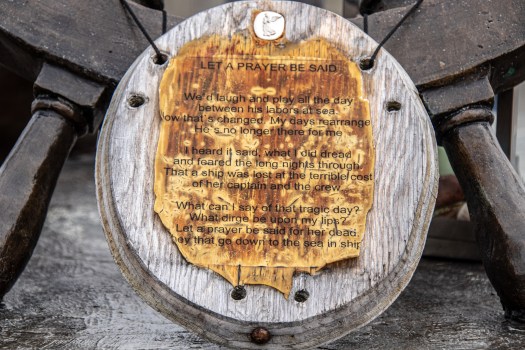 LET A PRAYER BE SAID
We'd laugh and play all the day
between his labors at sea
Now that's changed. My days rearrange
He's no longer there for me
I heard it said, what I did dread
and feared the long nights through
That a ship was lost at the terrible cost
of her captain and the crew
What can I say of that tragic day?
What dirge be upon my lips?
Let a prayer be said for her dead,
hey that go down to the sea in ship